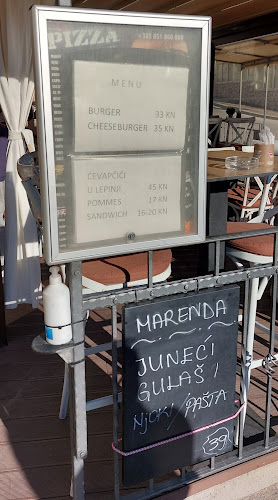 PIZZA
MENU
BURGER 33 KN
CHEESEBURGER 35 KN
ĆEVAPČIĆI
U LEPINJI 45 KN
POMMES 17 KN
SANDWICH 16-20 KN
MARENDA
JUNEĆI
GULAŠ /
NJOKI / PAŠTA
39